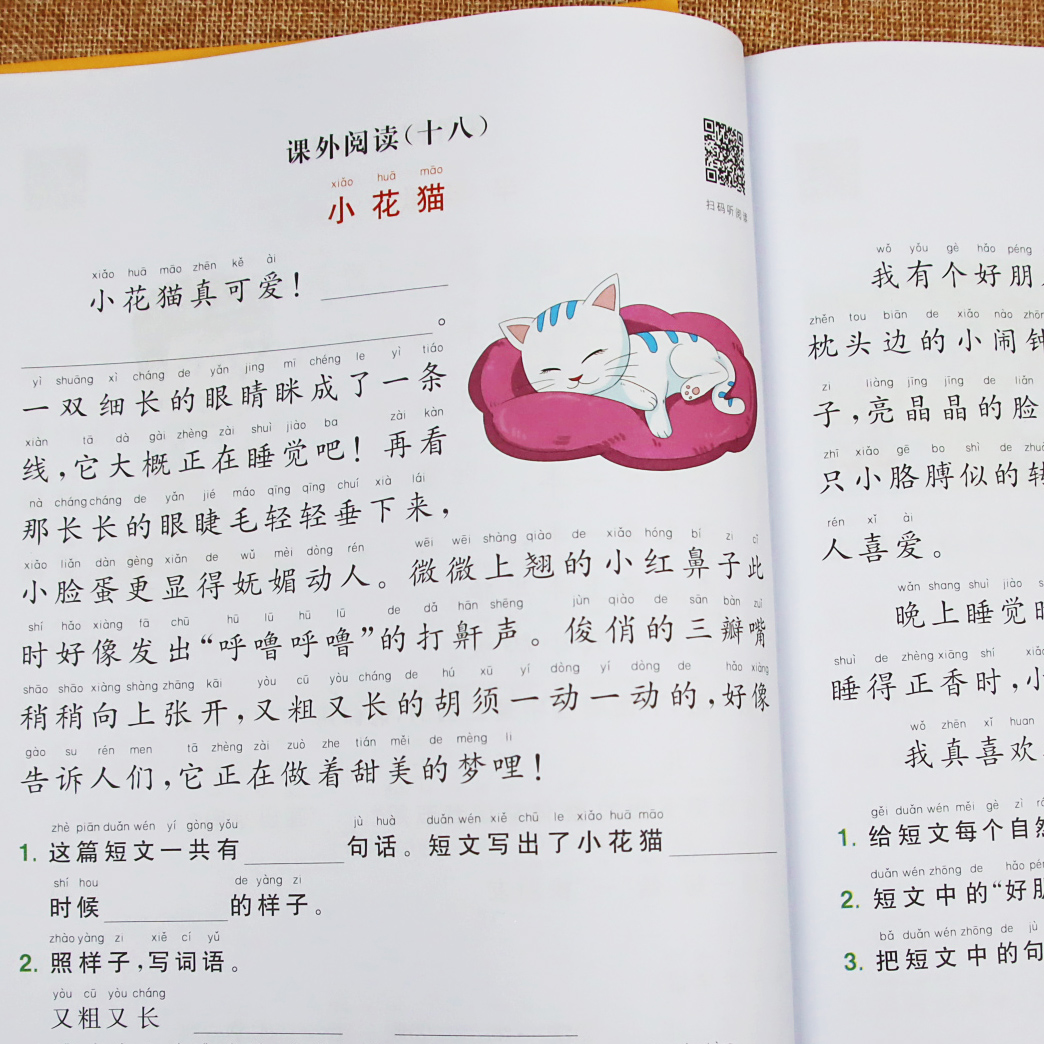 课外阅读(十八)
xiǎo huā māo
小花猫
扫码听阅读
xiǎo huā māo zhēn kě ài
小花猫真可爱!
。
yì shuāng xì cháng de yǎn jing mī chéng le yì tiáo
一双细长的眼睛眯成了一条
xiàn tā dà gài zhèng zài shuì jiào ba zài kàn
线,它大概正在睡觉吧!再看
nà cháng cháng de yǎn jié máo qīng qīng chuí xià lái
那长长的眼睫毛轻轻垂下来,
xiǎo liǎn dàn gèng xiǎn de wǔ mèi dòng rén wēi wēi shàng qiào de xiǎo hóng bí zi cǐ
小脸蛋更显得妩媚动人。微微上翘的小红鼻子此
shí hǎo xiàng fā chū hū lū hū lū de dǎ hān shēng jùn qiào de sān bàn zuǐ
时好像发出“呼噜呼噜”的打鼾声。俊俏的三瓣嘴
shāo shāo xiàng shàng zhāng kāi yòu cū yòu cháng de hú xū yí dòng yí dòng de hǎo xiàng
稍稍向上张开,又粗又长的胡须一动一动的,好像
gào su rén men tā zhèng zài zuò zhe tián měi de mèng li
告诉人们,它正在做着甜美的梦哩!
zhè piān duǎn wén yí gòng yǒu jù huà duǎn wén xiě chū le xiǎo huā māo
1. 这篇短文一共有 句话。短文写出了小花猫
shí hou de yàng zi
时候 的样子。
zhào yàng zi xiě cí yǔ
2. 照样子,写词语。
yòu cū yòu cháng
又粗又长
wǒ yǒu gè hǎo péng
我有个好朋
zhěn tou biān de xiǎo nào
枕头边的小闹钟
zi liàng jīng jīng de liǎn
子,亮晶晶的脸
zhī xiǎo gē bo shì de
只小胳膊似的
rén xǐ ài
人喜爱。
wǎn shang shuì jiào
晚上睡觉
shuì de zhèng xiāng shí
睡得正香时,小
wǒ zhēn xǐ huan
我真喜欢
gěi duǎn wén měi gè zì
1. 给短文每个自然
duǎn wén zhōng de hǎo
2. 短文中的“好朋
bǎ duǎn wén zhōng de jù
3. 把短文中的句